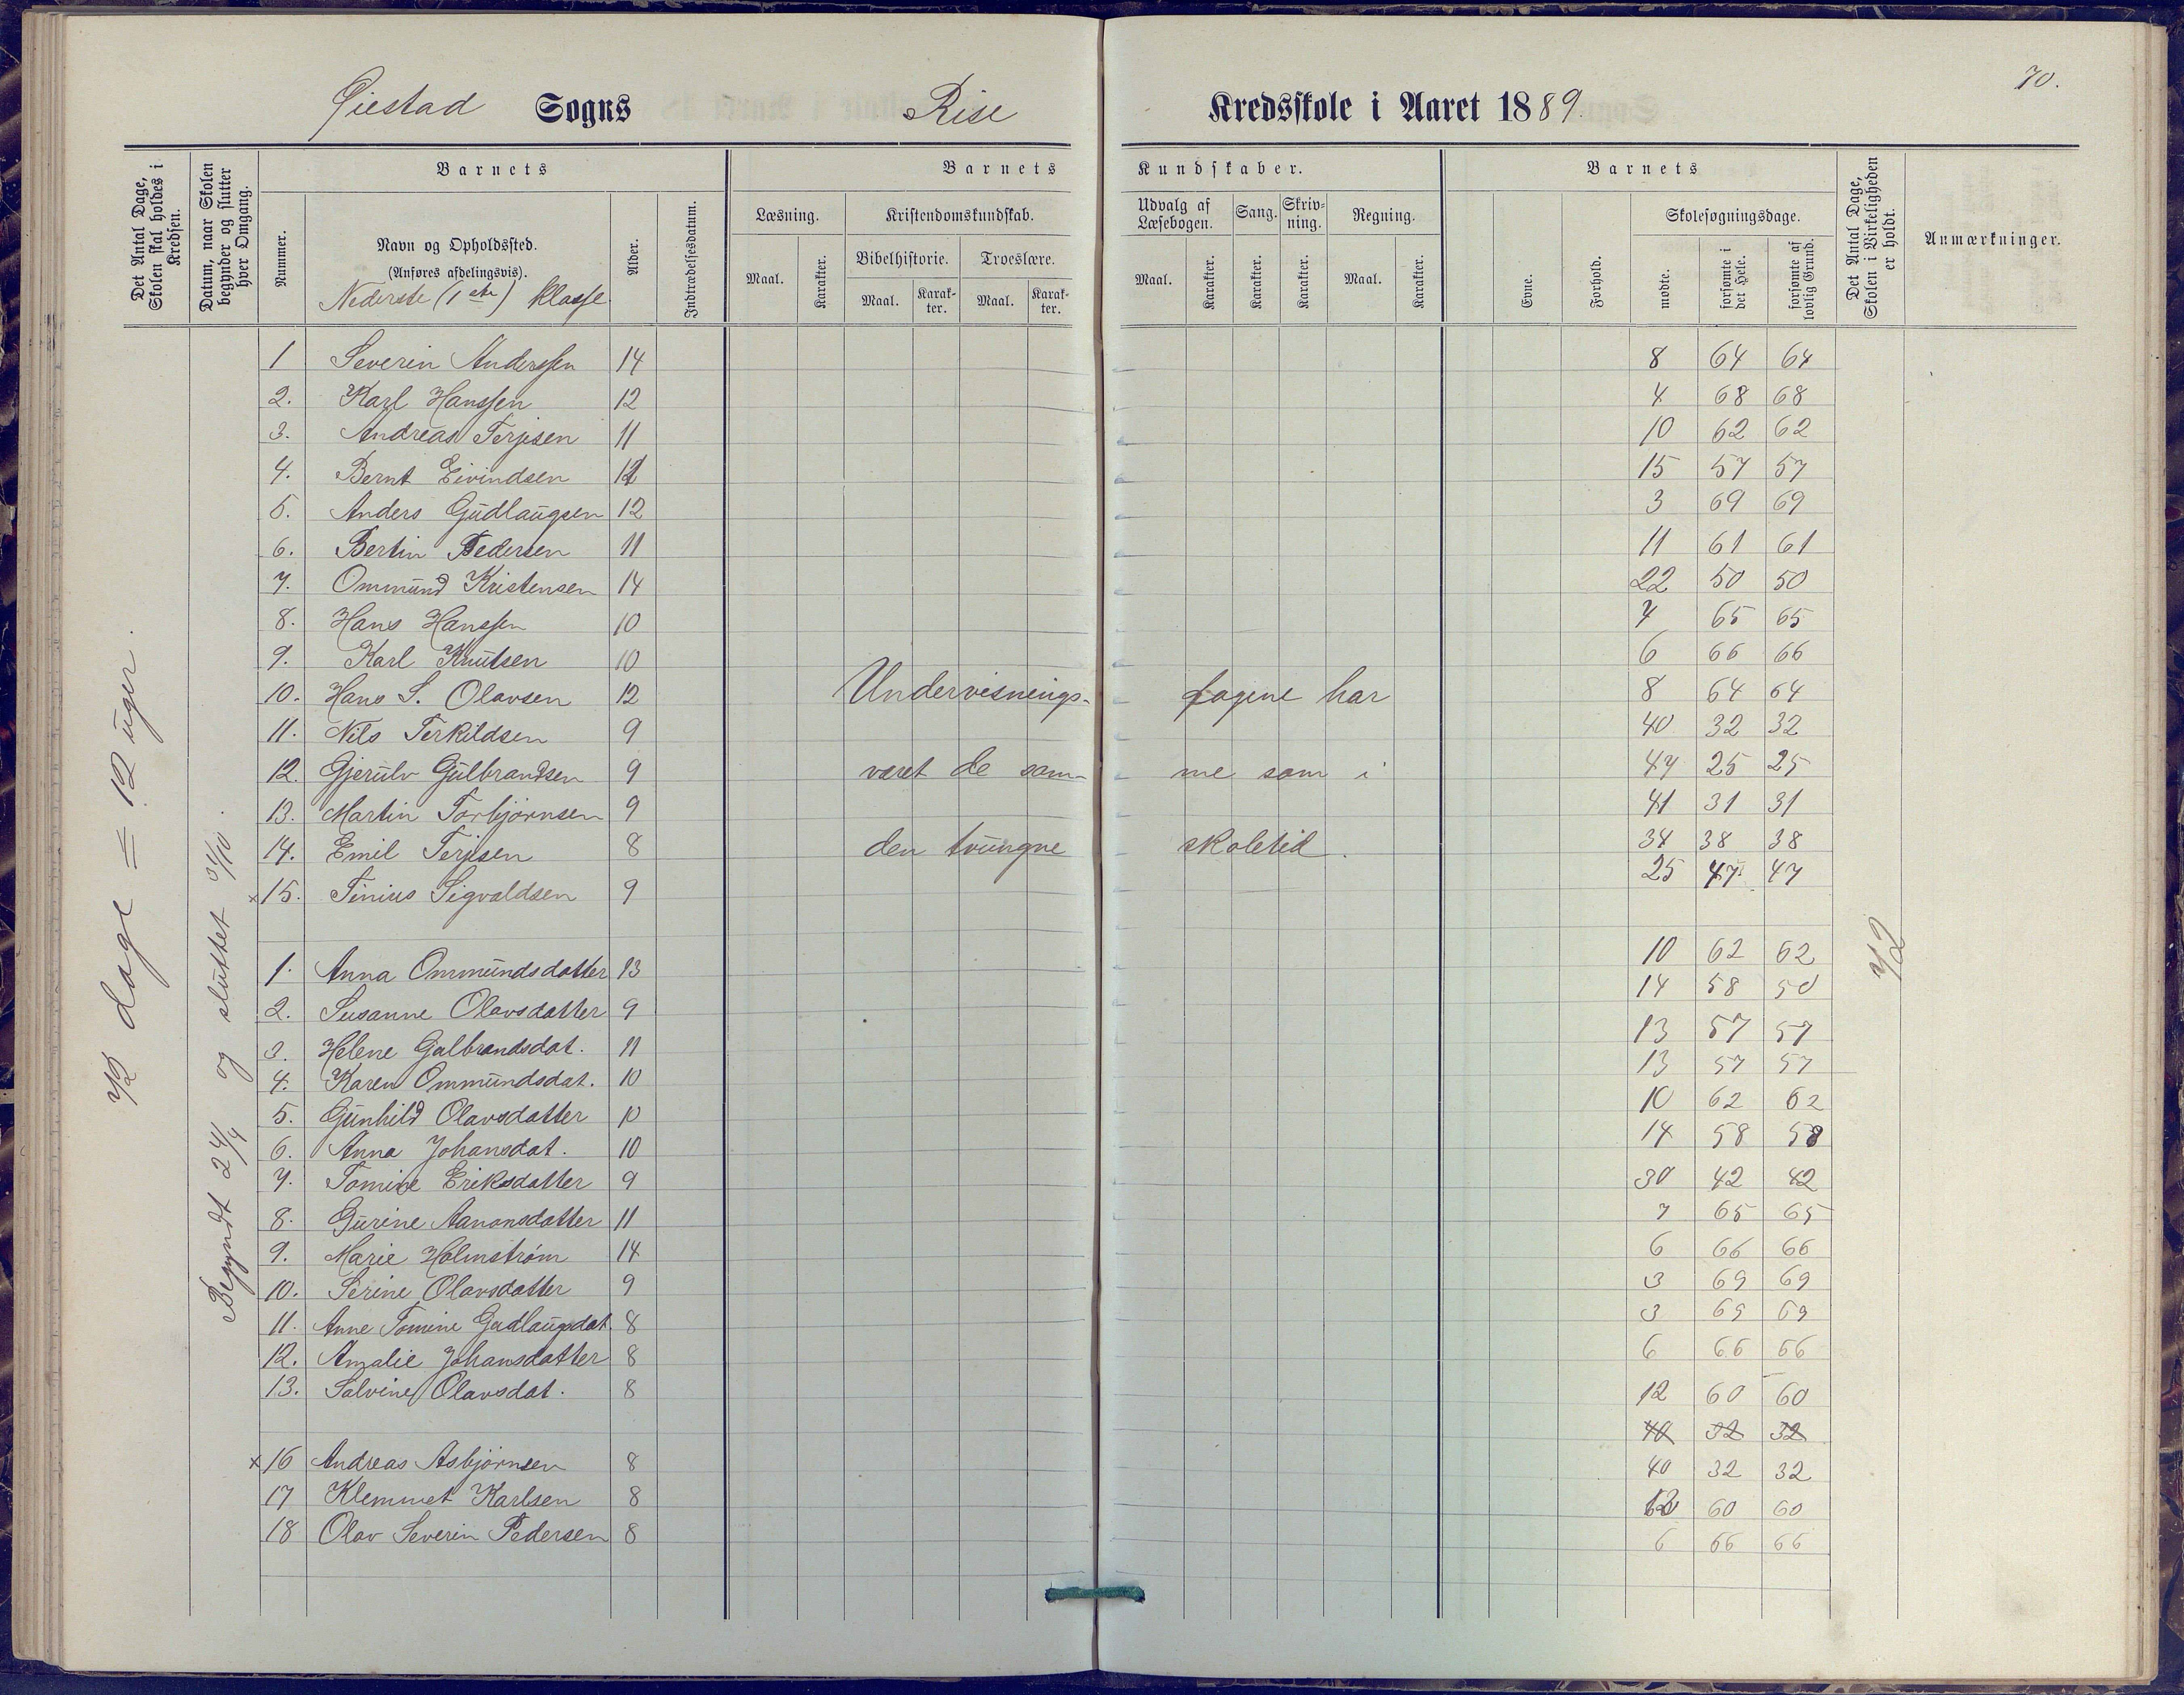 70.
Øiestad Sogns Rise Kredsskole i Aaret 1889.
Det Antal Dage, Skolen skal holdes i Kredsen.
Datum, naar Skolen begynder og slutter hver Omgang.
Barnets
Nummer.
Navn og Opholdssted.
(Anføres afdelingsvis).
Nederste (1ste) klasse
Alder.
Indtrædelsesdatum.
Barnets Kundskaber.
Læsning.
Maal.
Karakter.
Kristendomskundskab.
Bibelhistorie.
Maal.
Karak-
ter.
Troeslære.
Maal.
Karak-
ter.
Udvalg af
Læsebogen.
Maal.
Karakter.
Sang.
Karakter.
Skriv-
ning.
Karakter.
Regning.
Maal.
Karakter.
Barnets
Evne.
Forhold.
Skolesøgningsdage.
mødte.
forsømte i det Hele.
forsømte af lovlig Grund.
Det Antal Dage, Skolen i Virkeligheden er holdt.
Anmærkninger.
72 dage = 12 uger.
Begyndt 24/4 og sluttet 31/10.
72
1 Severin Anderssen 14 8 64 64
2. Karl Hanssen 12 4 68 68
3. Andreas Terjesen 11 10 62 62
4. Bernt Eivindsen 15 57 57
5. Anders Gudlaugsen 12 3 69 69
6. Bertin Pedersen 11 11 61 61
7. Ommund Kristensen 14 22 50 50
8. Hans Hanssen 10 7 65 65
9. Karl Knutsen 10 6 66 66
10. Hans S. Olavsen 12 Undervisnings- fagene har 8 64 64
11. Nils Terkildsen 9 40 32 32
12. Gjerulv Gulbrandsen 9 været de sam- me som i 47 25 25
13. Martin Torbjørnsen 9 41 31 31
14. Emil Terjesen 8 den tvungne skoletid. 34 38 38
x 15. Tinius Sigvaldsen 9 25 47 47
1. Anna Ommundsdatter 13 10 62 62
2. Susanne Olavsdatter 9 14 58 58
3. Helene Gulbrandsdat. 11 13 57 57
4. Karen Ommundsdat. 10 13 57 57
5. Gunhild Olavsdatter 10 10 62 62
6. Anna Johansdat. 10 14 58 58
7. Tomine Eriksdatter 9 30 42 42
8. Gurine Aanonsdatter 11 7 65 65
9. Marie Holmstrøm 14 6 66 66
10. Serine Olavsdatter 9 3 69 69
11. Anne Tomine Gudlaugsdat. 8 3 69 69
12. Amalie Johansdatter 8 6 66 66
13. Salvine Olavsdat. 8 12 60 60
40 32 32
x 16 Andreas Asbjørnsen 8 40 32 32
17 Klemmet Karlsen 8 12 60 60
18 Olav Severin Pedersen 8 6 66 66